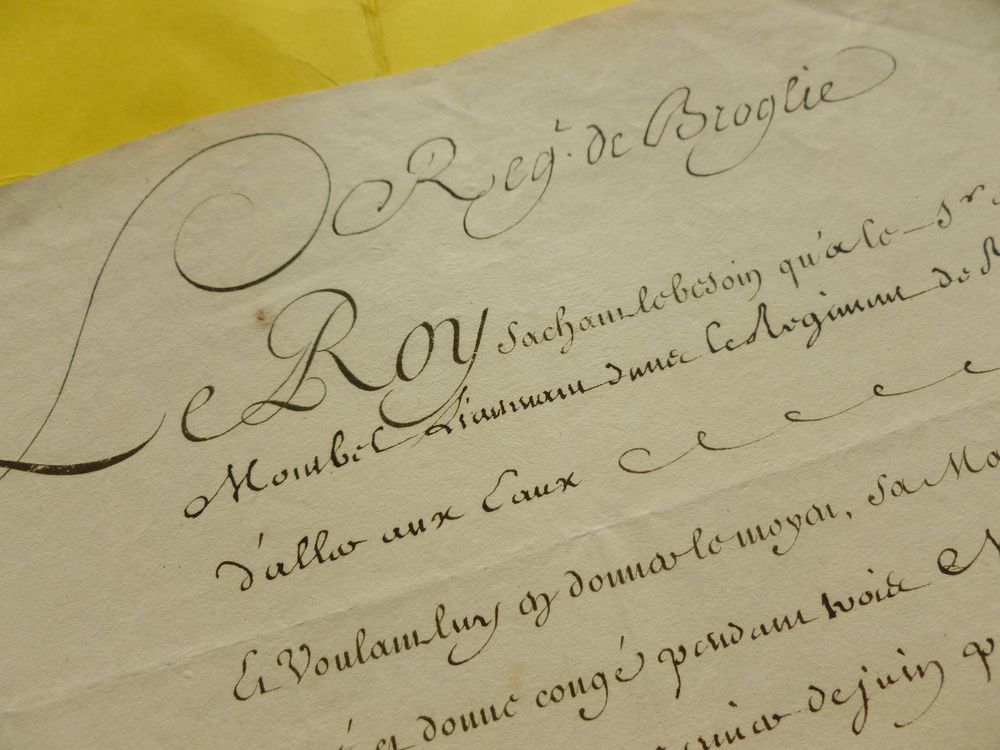 Reg.t de Broglie
Le Roy sachant le besoin qu'a le Sr
Monbel Lieutenant dans le Regiment de
d'aller aux Eaux
Et Voulant luy en donner le moyen, Sa Ma
et donné congé pendant trois
de juin